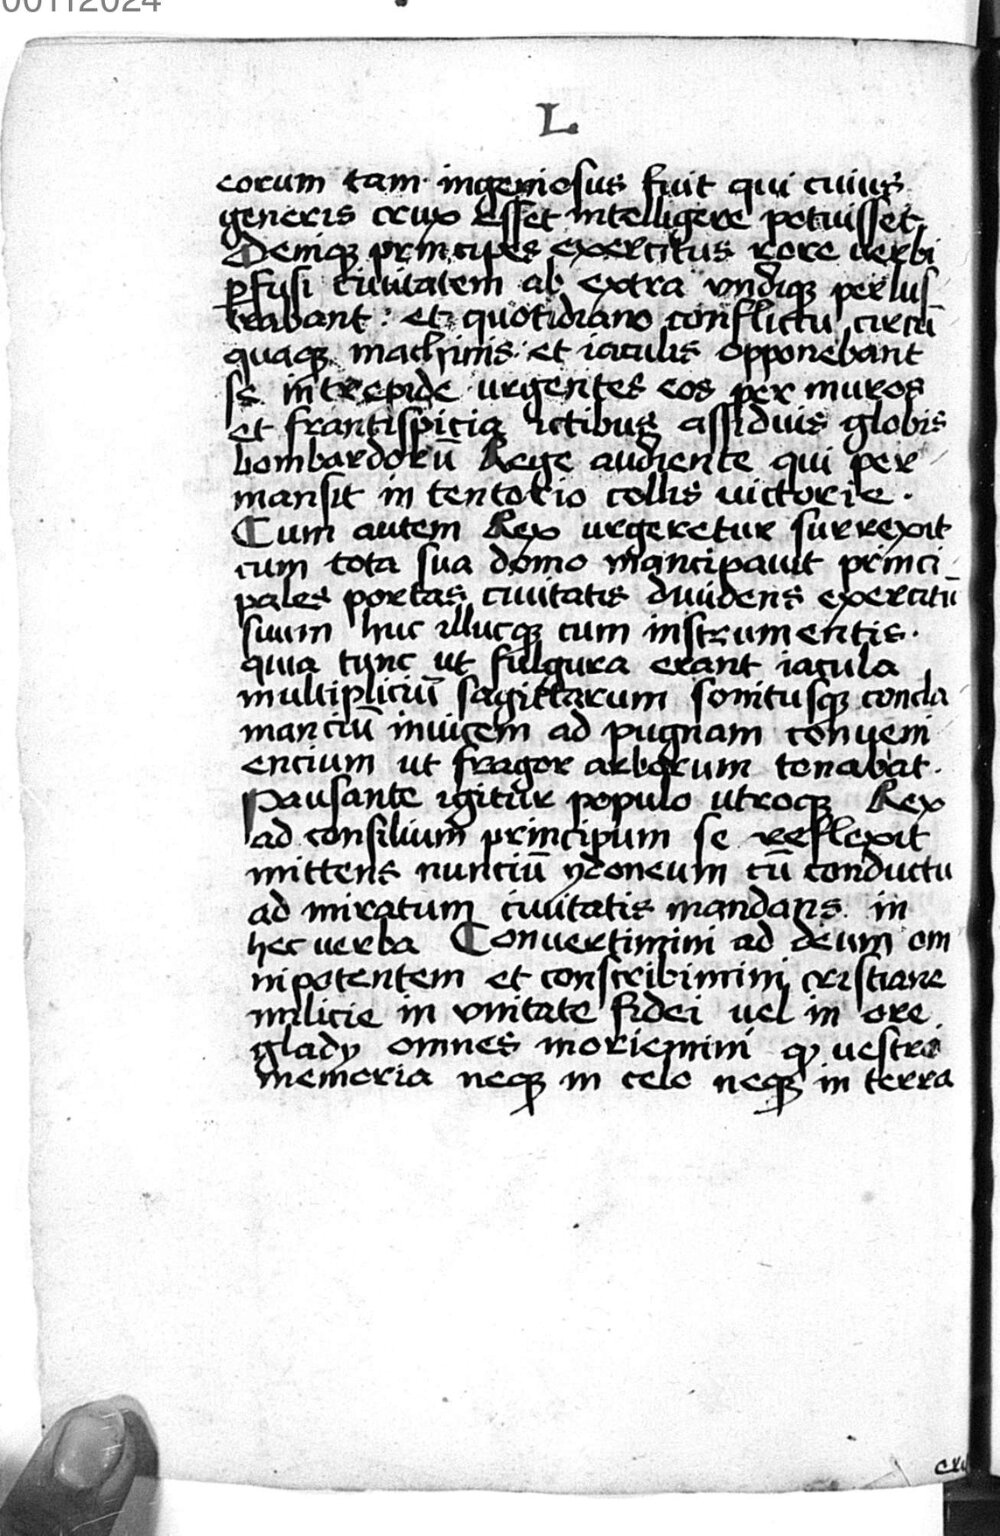 00112024
L
eorum tam ingeniosus fuit qui cuius
generis crux esset intelligere potuisset
Deniq̃ principes exercitus rore uerbi
ꝑfusi ciuitatem ab extra vndiq̃ perlus
trabant : et quotidiano conflictu circũ
quaq̃ machinis et iaculis opponebant
se intrepide urgentes eos per muros
et frantispicia ictibus assiduis globis
bombardorũ Rege audiente qui per
mansit in tentorio collis uictorie .
Cum autem Rex urgeretur surrexit
cum tota sua domo mancipauit princi
pales portas ciuitatis diuidens exercitũ
suum huc illucq̃ cum instrumentis .
quia tunc ut fulgura erant iacula
multipliciũ sagittarum sonitusq̃ concla
manciũ inuicem ad pugnam conueni
encium ut fragor arborum tonabat .
Pausante igitur populo utroq̃ Rex
ad consilium principum se reflexit
mittens nunciũ ydoneum cũ conductu
ad miratum ciuitatis mandans in
hec uerba Conuertimini ad deum om
nipotentem et conscribimini cristiane
milicie in vnitate fidei uel in ore
glady omnes moriemini ꝙ uestra
memoria neq̃ in celo neq̃ in terra